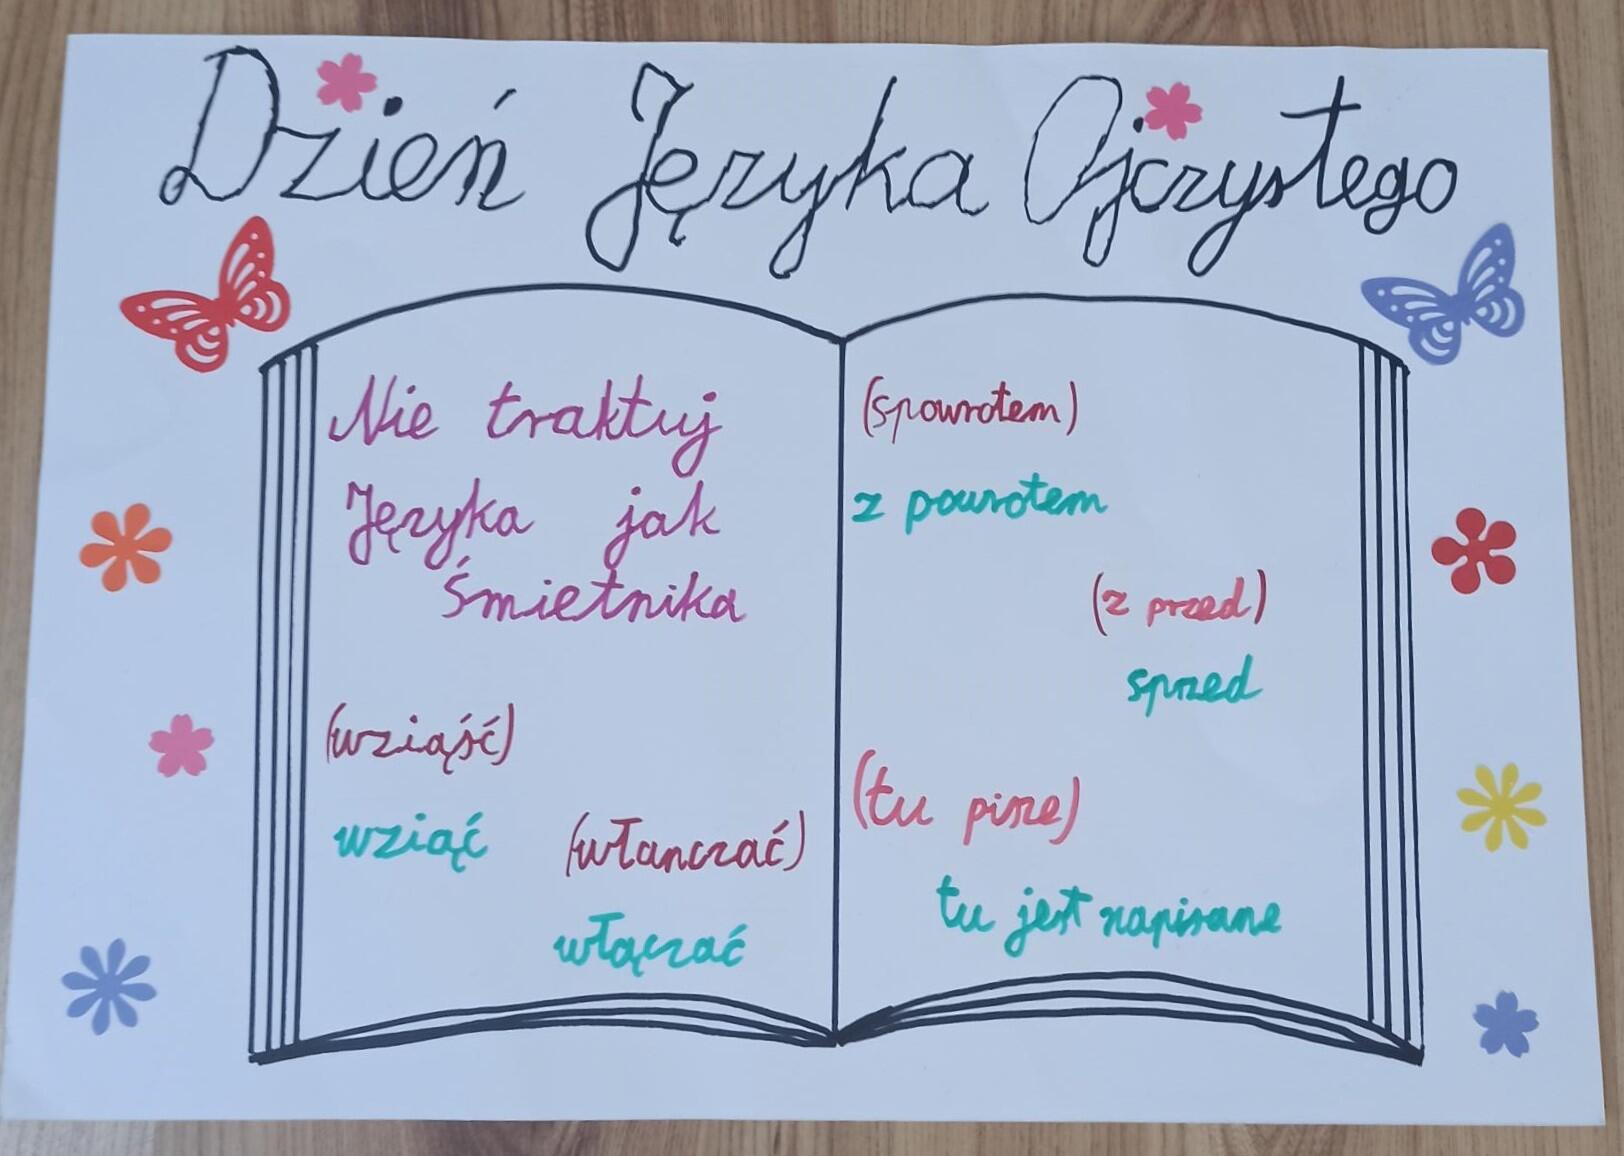 Dzień Języka Ojczystego
Nie traktuj
Języka jak
Śmietnika
(wziąść)
wziąć
(włanczać)
włączać
(spowrotem)
z powrotem
(z przed)
sprzed
(tu pisze)
tu jest napisane